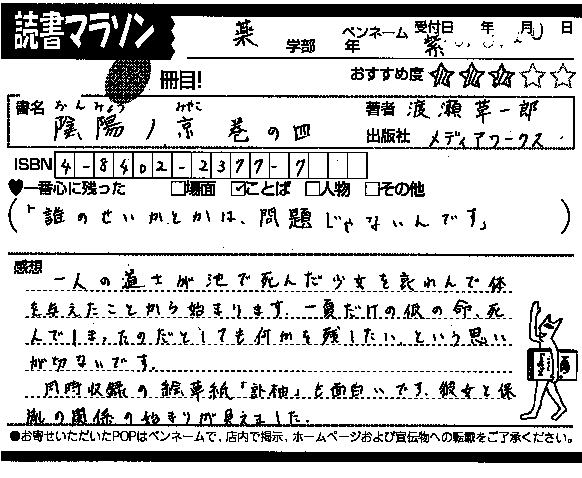 読書マラソン
薬 学部 年 ペンネーム 紫 受付日 年 月 日
冊目! おすすめ度 ★★★☆☆
書名 おんみょう みやこ
陰陽ノ京 巻の四
著者 渡瀬草一郎
出版社 メディアワークス
ISBN 4-8402-2377-7
♥一番心に残った □場面 ☑ことば □人物 □その他
(「誰のせいかとかは、問題じゃないんです」)
感想
一人の道士が池で死んだ少女を哀れんで体
を与えたことから始まります。一夏だけの仮の命、死
んでしまったのだとしても何かを残したい、という思い
が切ないです。
同時収録の絵草紙「訃柚」も面白いです。彼女と保
胤の関係の始まりが見えました。
●お寄せいただいたPOPはペンネームで、店内で掲示、ホームページおよび宣伝物への転載をご了承ください。